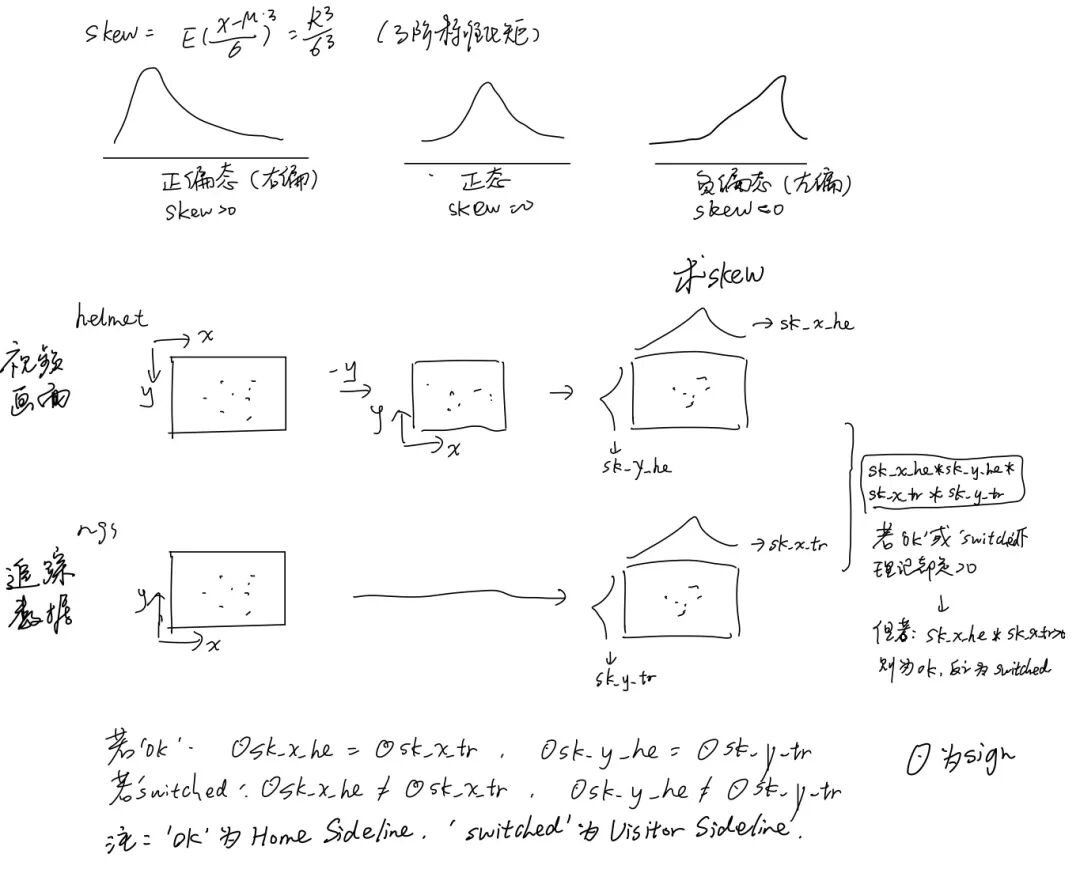 skew = E(x-μ/6)³ = k³/6³ (3阶标准化矩)
正偏态(右偏)
skew>0
正态
skew=0
负偏态(左偏)
skew<0
求skew
helmet
视频
画面
x
y
-y
y
x
sk_x_he
sk_y_he
ngs
追踪
数据
y
x
sk_x_tr
sk_y_tr
sk_x_he*sk_y_he*
sk_x_tr*sk_y_tr
若'ok'或'switched'
理论都是>0
但若: sk_x_he*sk_x_tr>0
则为ok, 反之为switched
若'ok': ⊙sk_x_he = ⊙sk_x_tr, ⊙sk_y_he = ⊙sk_y_tr
⊙为sign
若'switched': ⊙sk_x_he ≠ ⊙sk_x_tr, ⊙sk_y_he ≠ ⊙sk_y_tr
注: 'ok'为Home Sideline, 'switched'为Visitor Sideline.